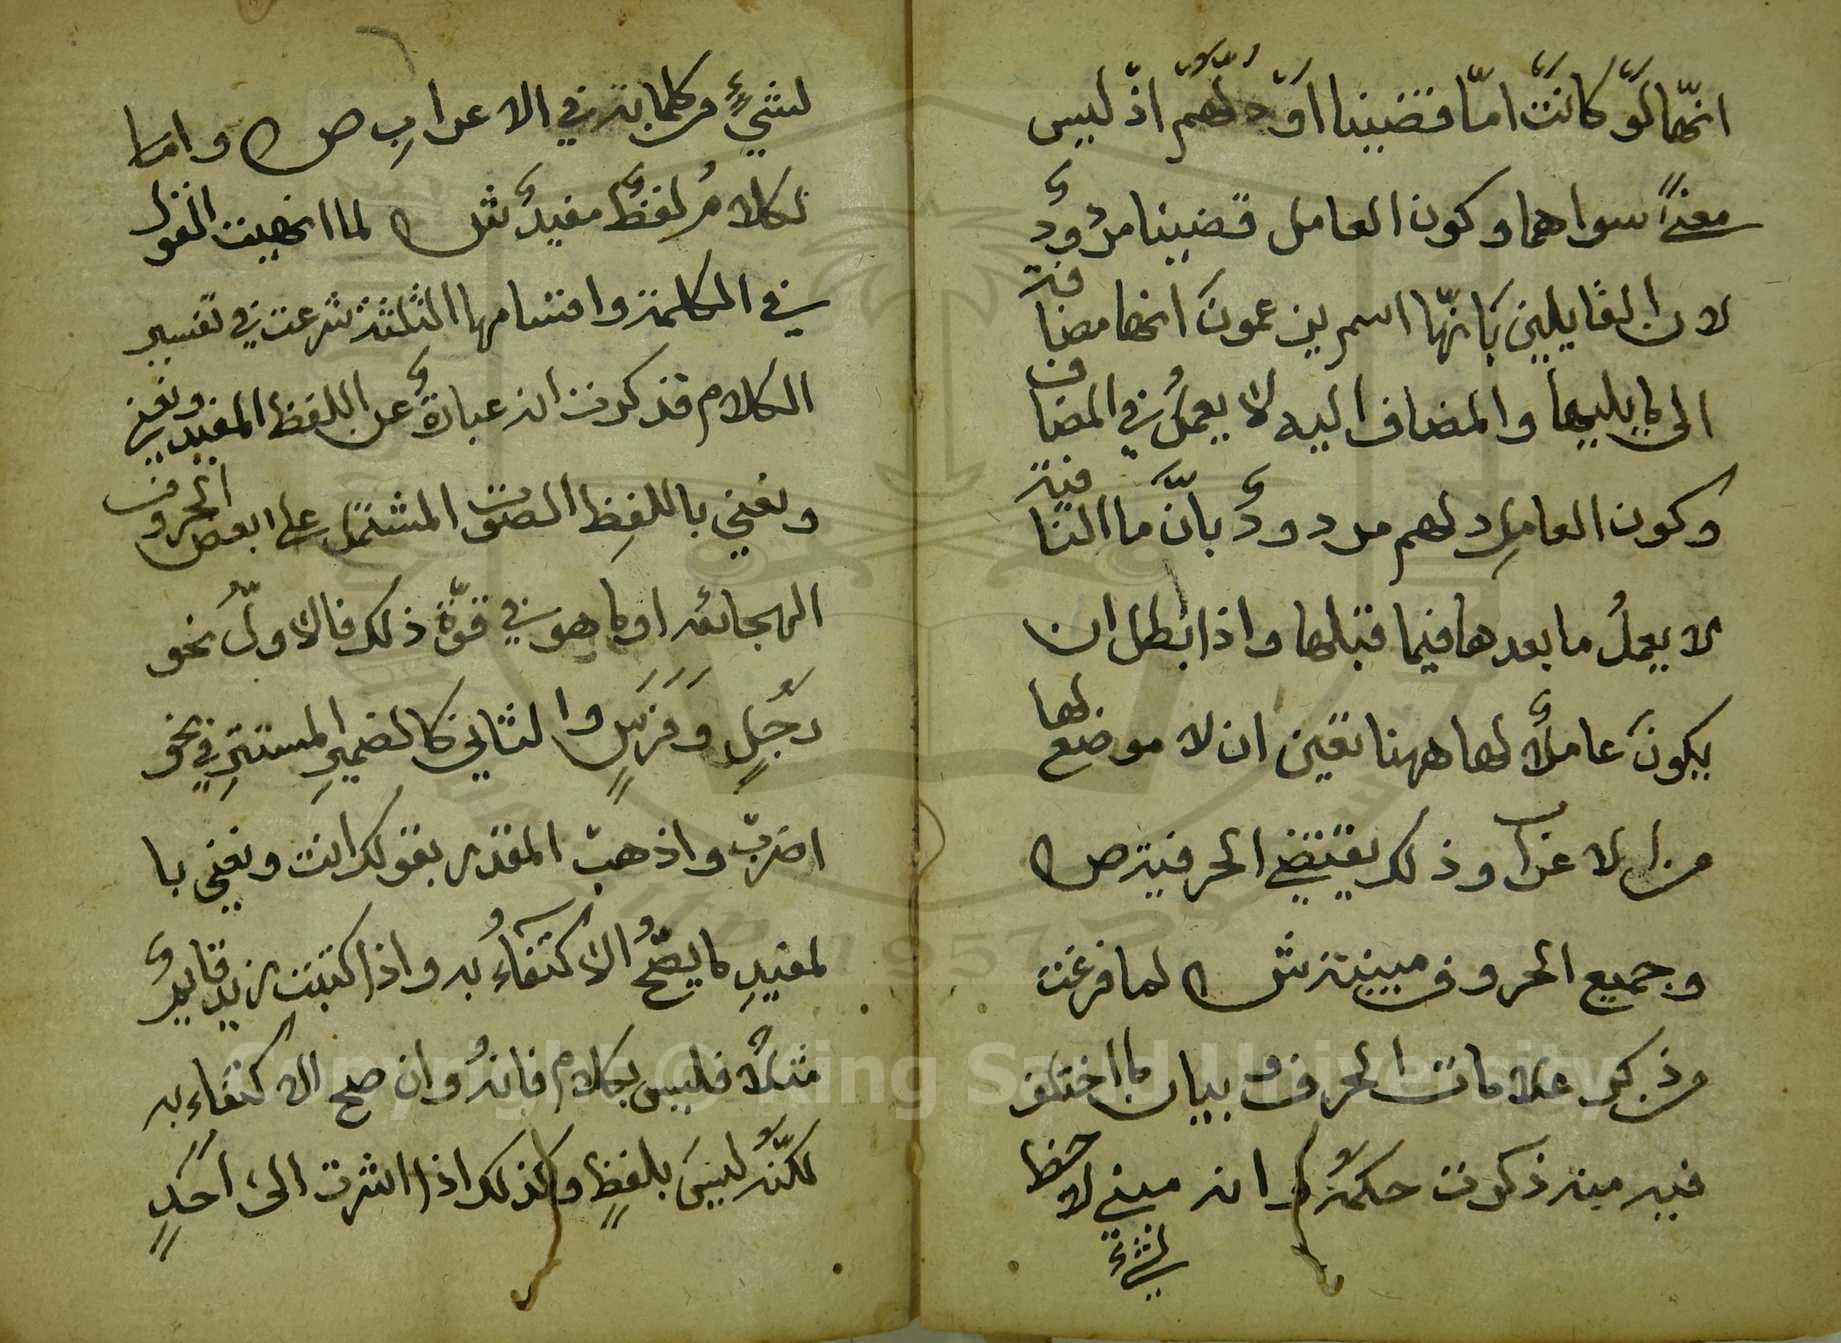 انّها لو كانت امّا فضيننا او دلهم اذ ليس
معنىً سواهما وكون العامل قضينا مردودٌ
لان القايلين بانّها اسم يزعمون انها مضافة
الى ما يليها والمضاف اليه لا يعملُ في المضاف
وكون العامل دلهم مردودٌ بانَّ ما النافية
لا يعملُ ما بعدها فيما قبلها واذا بطل ان
يكونَ عاملاً لها ههنا تعين ان لا موضع لها
من الاعراب وذلك يقتضي الحرفية ص
وجميع الحروف مبينة ش لما فرغت
من ذكر علامات الحرف وبيان ما اختلف
فيه منه ذكرت حكمهُ وانه مبني لا حظ
لشيءٍ من كلماته في الاعرابِ ص واما
لكلامُ لفظٌ مفيدٌ ش لما انهيت القول
في الكلمة واقسامها الثلثة شرعت في تفسير
الكلام فذكرت انه عبارةٌ عن اللفظ المفيد ونعني
ونعني باللفظِ الصوت المشتمل على بعض الحروف
الهجائه او ما هو في قوّة ذلك فالاولُ نحو
رجُلٍ وَفَرَسٍ والثاني كالضميرِ المستترِ في نحو
اضربْ واذهبْ المقدر بقولك انت ونعني با
لمفيدِ ما يصحُّ الاكتفاءُ به واذا كتبت زيد قايمٌ
مثلاً فليس بكلام فانهُ وان صح الاكتفاء به
لكنّهُ ليسَ بلفظٍ وكذلك اذا اشرت الى احدٍ